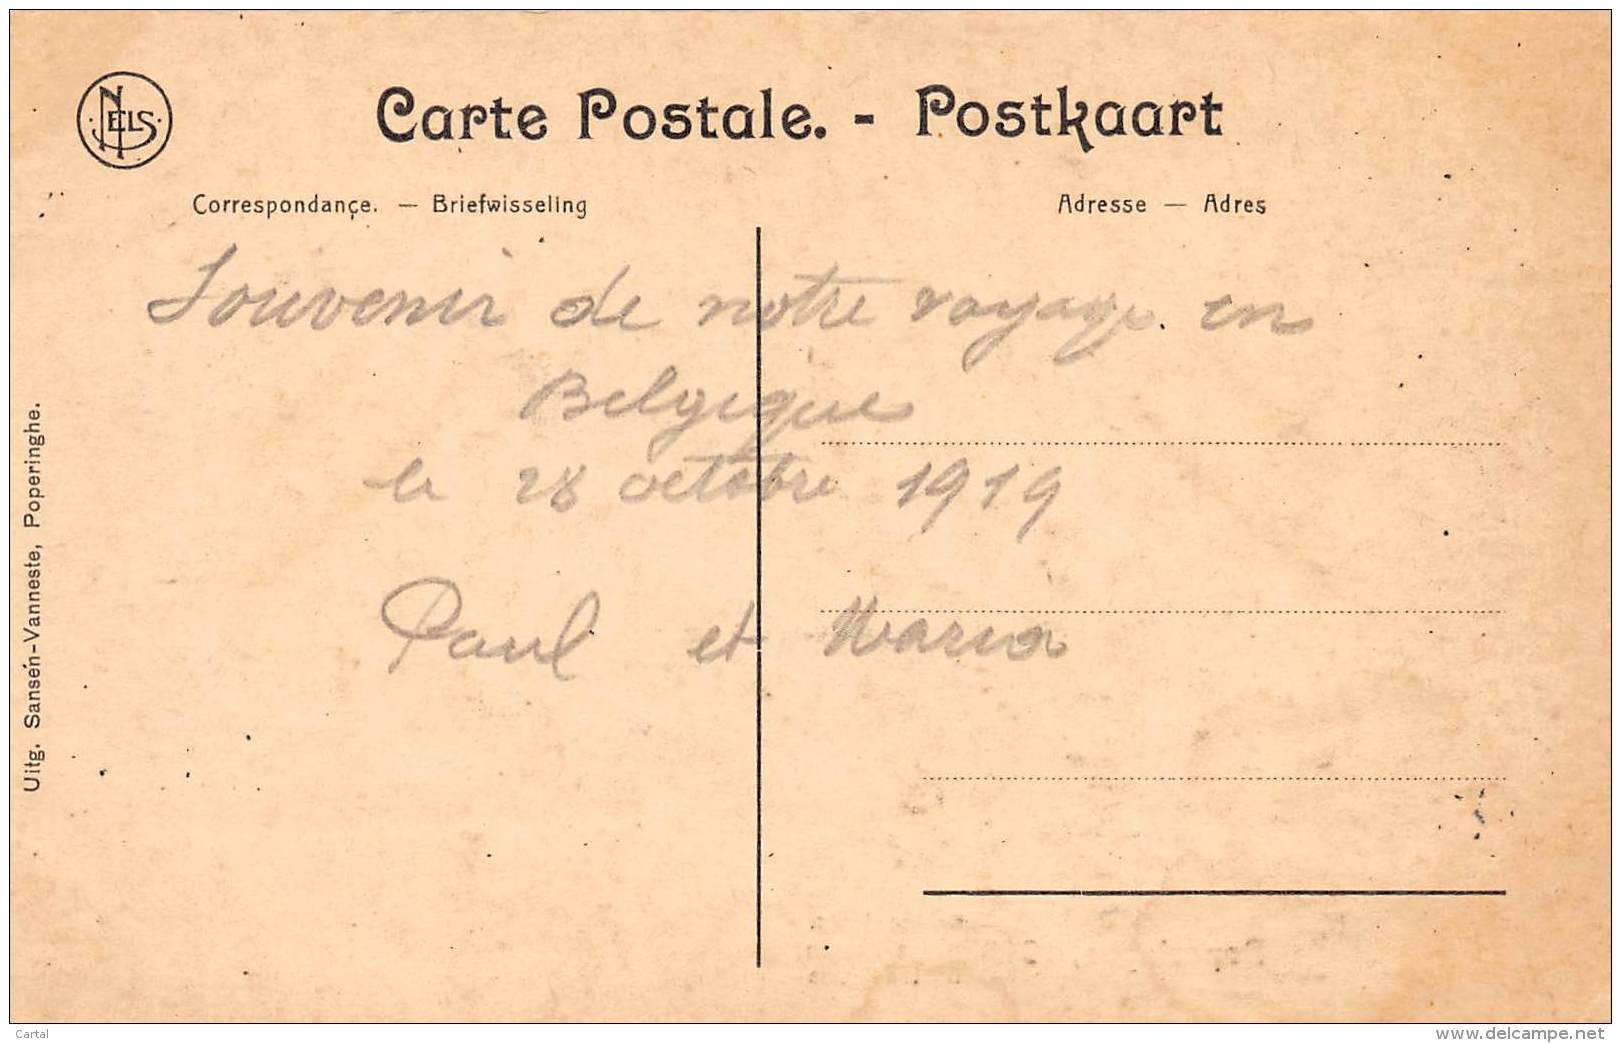 NELS
Carte Postale. - Postkaart
Correspondançe. — Briefwisseling
Adresse — Adres
Souvenir de notre voyage en
Belgique
le 28 octobre 1919
Paul et Maria
Uitg. Sansen-Vanneste, Poperinghe.
Cartal
www.delcampe.net